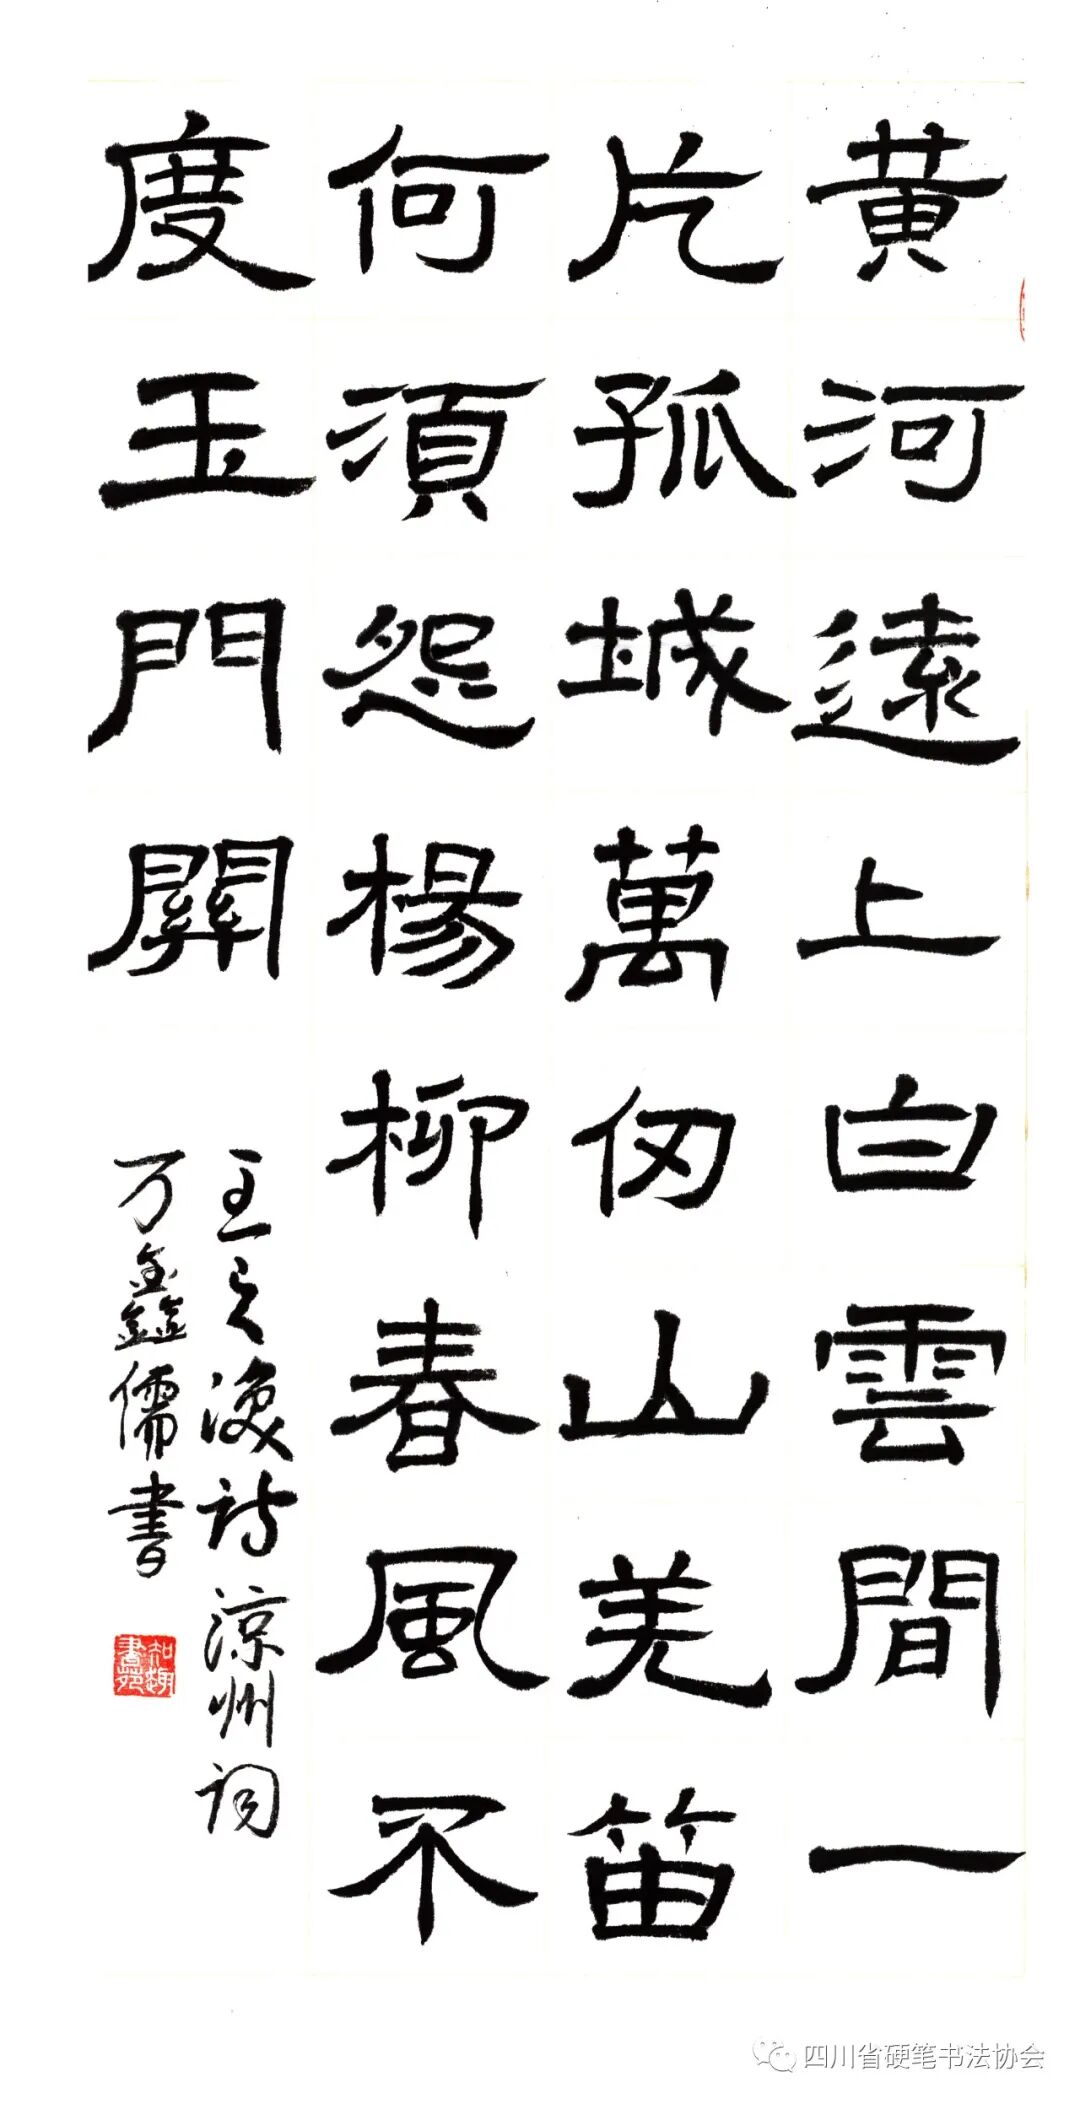 黄河遠上白雲間一
片孤城萬仞山羌笛
何須怨楊柳春風不
度玉門關
王之渙詩涼州词
万鑫儒書
知趣書苑
四川省硬笔书法协会